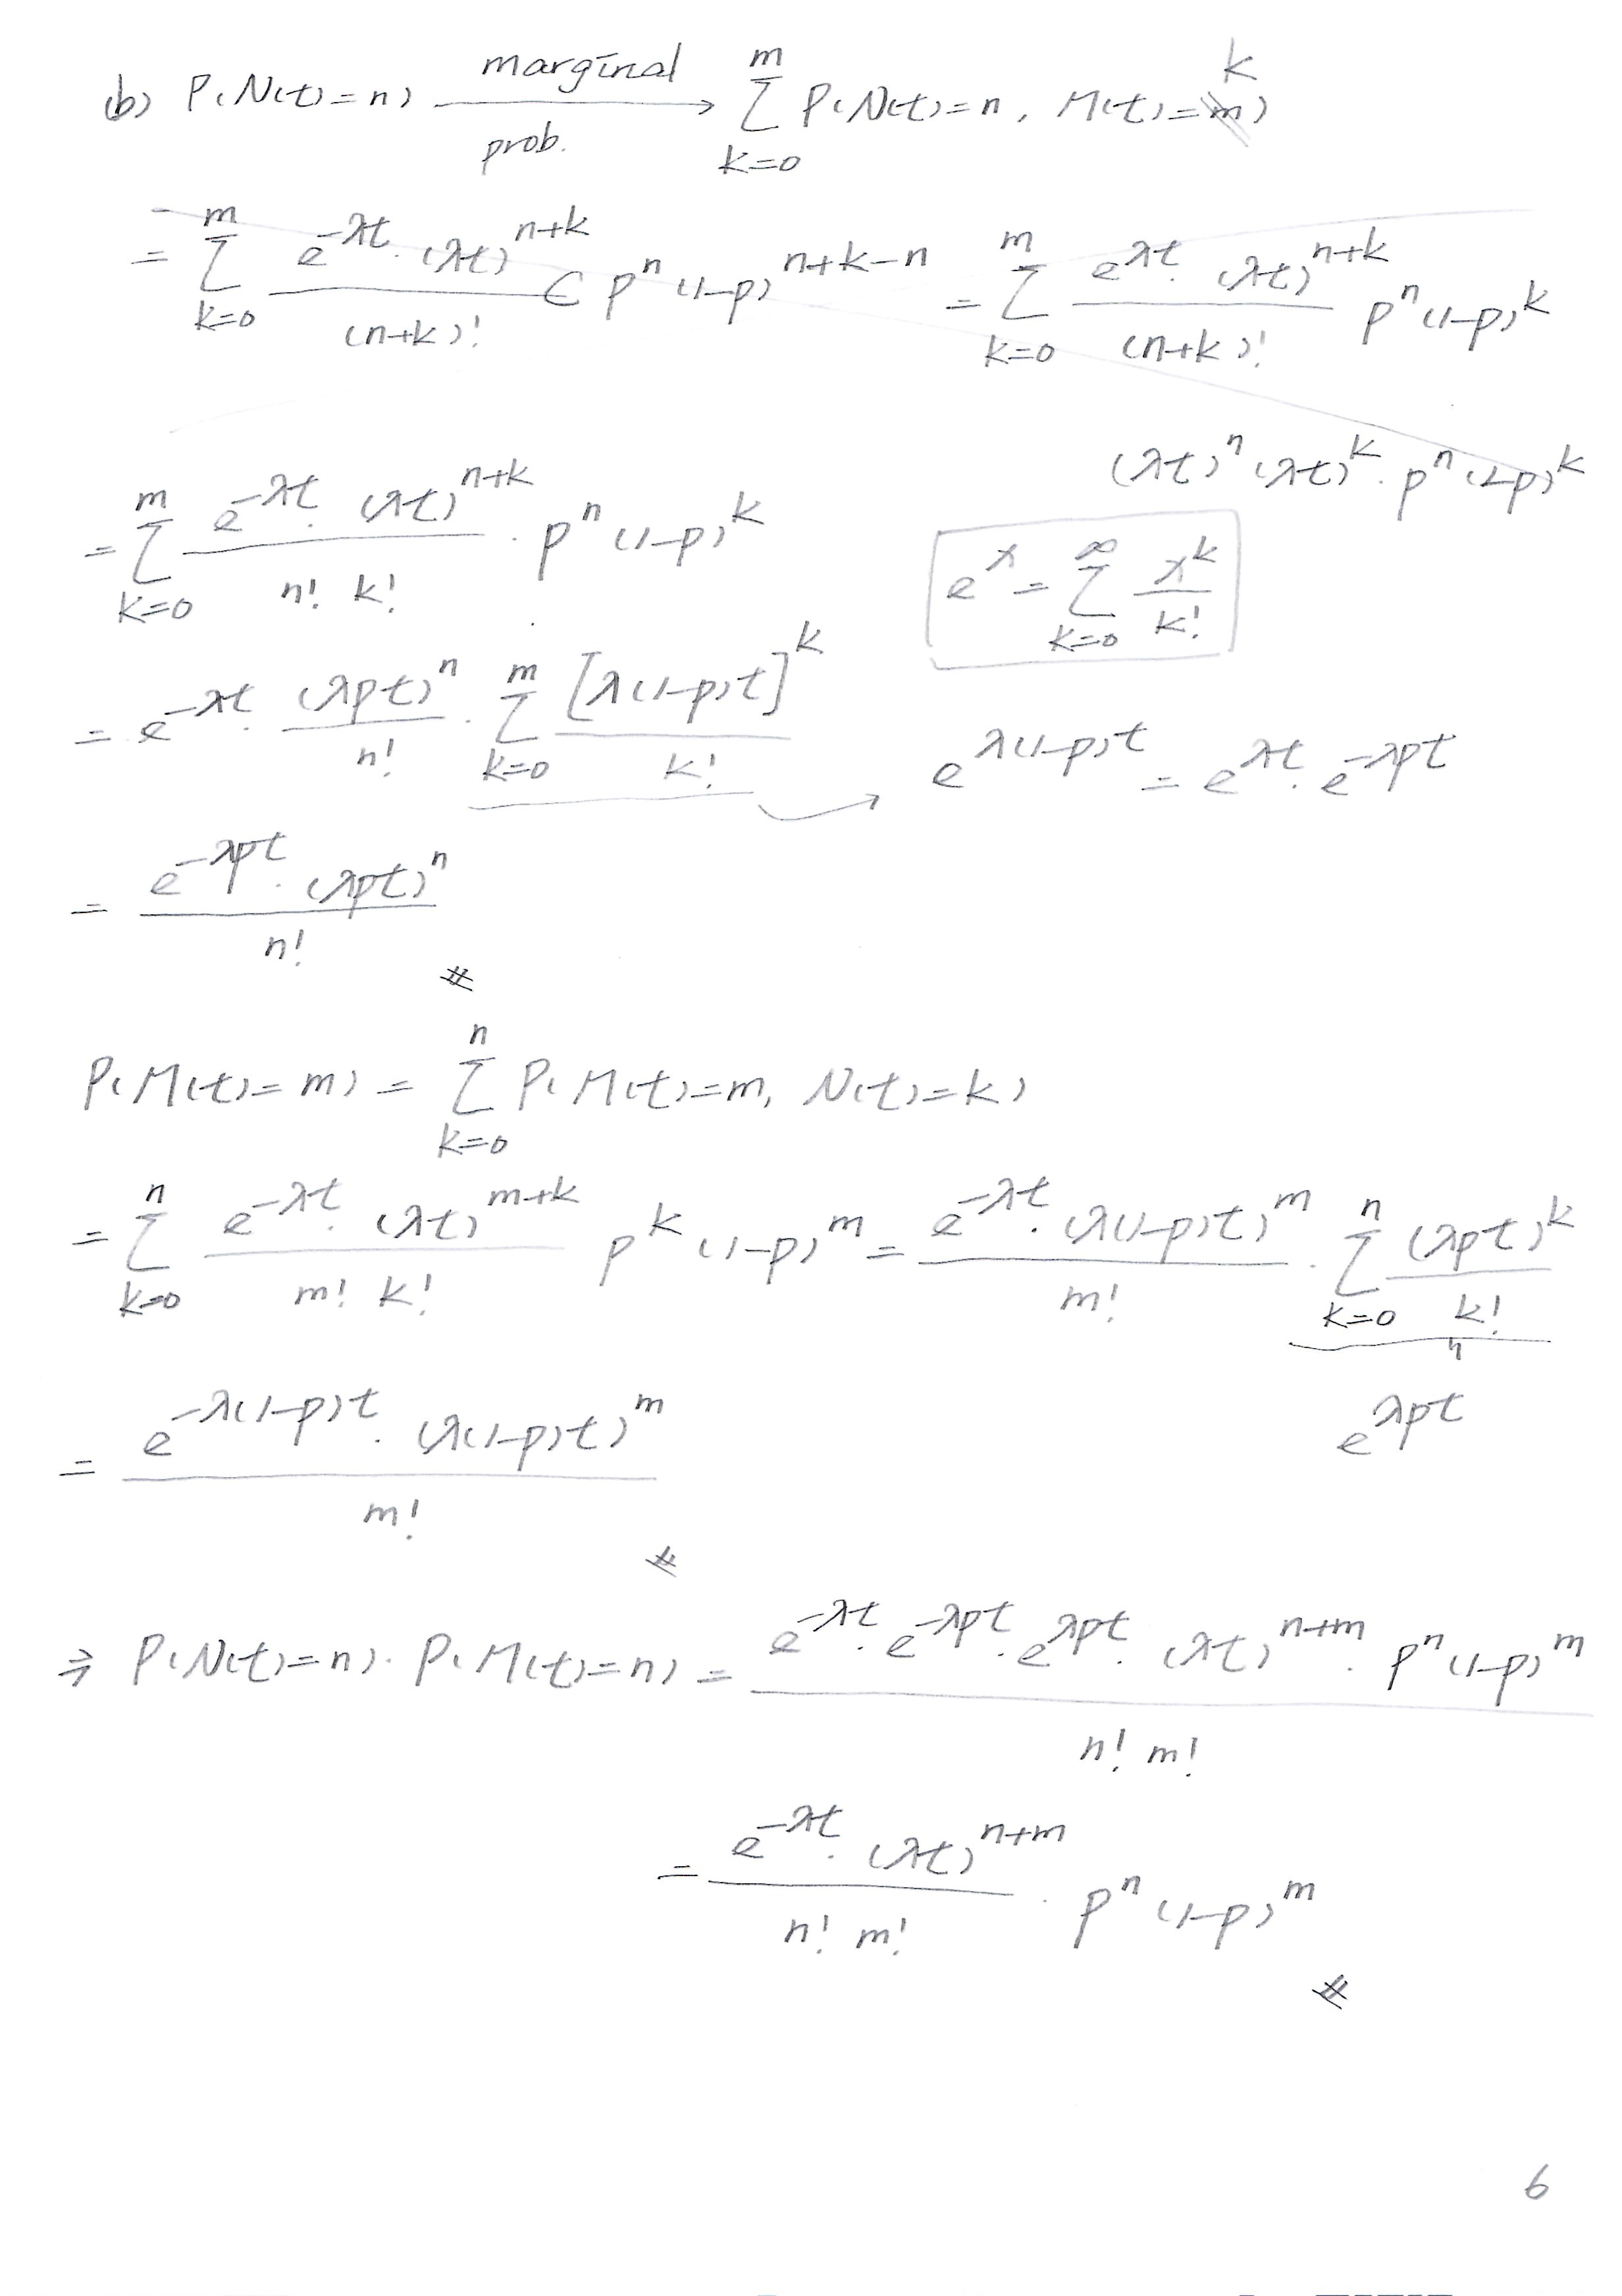 (b) P(N(t)=n) \xrightarrow[prob.]{marginal} \sum_{k=0}^{m} P(N(t)=n, M(t)=k)
= \sum_{k=0}^{m} \frac{e^{-λt}·(λt)^{n+k}}{(n+k)!} C p^n (1-p)^{n+k-n} = \sum_{k=0}^{m} \frac{e^{λt}·(λt)^{n+k}}{(n+k)!} p^n (1-p)^k
(λt)^n (λt)^k · p^n (1-p)^k
= \sum_{k=0}^{m} \frac{e^{-λt}·(λt)^{n+k}}{n! k!} · p^n (1-p)^k
e^x = \sum_{k=0}^{∞} \frac{x^k}{k!}
= e^{-λt}· \frac{(λpt)^n}{n!} · \sum_{k=0}^{m} \frac{[λ(1-p)t]^k}{k!} → e^{λ(1-p)t} = e^{λt}·e^{-λpt}
= \frac{e^{-λpt}·(λpt)^n}{n!} #
P(M(t)=m) = \sum_{k=0}^{n} P(M(t)=m, N(t)=k)
= \sum_{k=0}^{n} \frac{e^{-λt}·(λt)^{m+k}}{m! k!} p^k (1-p)^m = \frac{e^{-λt}·(λ(1-p)t)^m}{m!} · \sum_{k=0}^{n} \frac{(λpt)^k}{k!}
e^{λpt}
= \frac{e^{-λ(1-p)t}·(λ(1-p)t)^m}{m!} #
⇒ P(N(t)=n)·P(M(t)=n) = \frac{e^{-λt}·e^{-λpt}·e^{λpt}·(λt)^{n+m}·p^n (1-p)^m}{n! m!}
= \frac{e^{-λt}·(λt)^{n+m}}{n! m!} · p^n (1-p)^m #
6